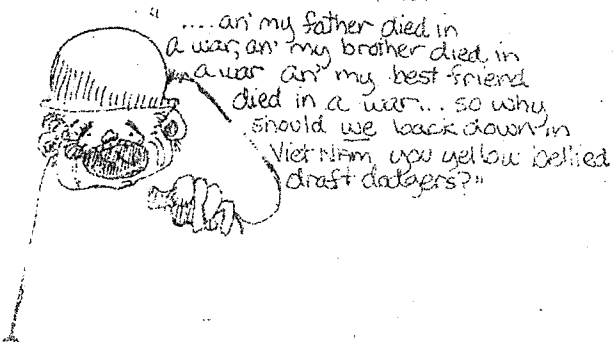 ".... an' my father died in
a war, an' my brother died in
a war an' my best friend
died in a war... so why
should we back down in
Viet Nam, you yellow bellied
draft dodgers?"